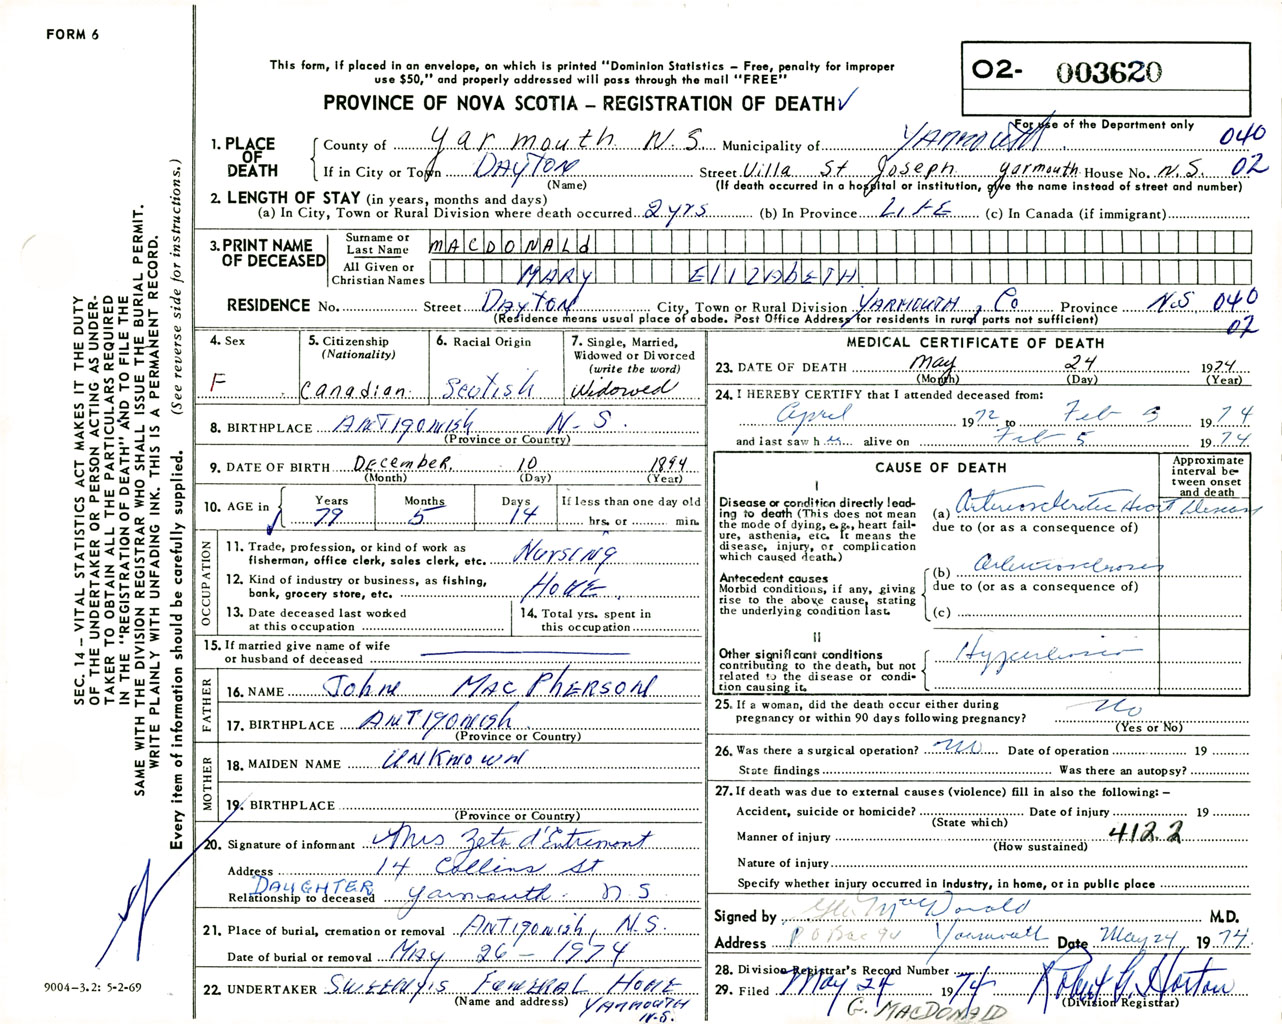 FORM 6
This form, if placed in an envelope, on which is printed "Dominion Statistics – Free, penalty for improper
use $50," and properly addressed will pass through the mail "FREE"
PROVINCE OF NOVA SCOTIA – REGISTRATION OF DEATH ✓
O2- 003620
For use of the Department only
1. PLACE OF DEATH
County of Yarmouth N.S. Municipality of YARMOUTH 040
If in City or Town DAYTON Street Villa St Joseph Yarmouth House No. N.S. 02
(Name) (If death occurred in a hospital or institution, give the name instead of street and number)
2. LENGTH OF STAY (in years, months and days)
(a) In City, Town or Rural Division where death occurred 2 yrs (b) In Province LIFE (c) In Canada (if immigrant)
3. PRINT NAME OF DECEASED
Surname or Last Name MACDONALd
All Given or Christian Names MARY ELIZAbETH
RESIDENCE No. Street DAYTON City, Town or Rural Division YARMOUTH, Co Province N.S. 040
(Residence means usual place of abode. Post Office Address for residents in rural parts not sufficient) 02
4. Sex F
5. Citizenship (Nationality) Canadian
6. Racial Origin Scotish
7. Single, Married, Widowed or Divorced (write the word) Widowed
8. BIRTHPLACE ANTIGONISH N.S.
(Province or Country)
9. DATE OF BIRTH DECEMBER 10 1894
(Month) (Day) (Year)
10. AGE in Years 79 Months 5 Days 14 If less than one day old hrs. or min.
OCCUPATION
11. Trade, profession, or kind of work as fisherman, office clerk, sales clerk, etc. Nursing
12. Kind of industry or business, as fishing, bank, grocery store, etc. HOME
13. Date deceased last worked at this occupation
14. Total yrs. spent in this occupation
15. If married give name of wife or husband of deceased
FATHER
16. NAME John MacPHERSON
17. BIRTHPLACE ANTIGONISH
(Province or Country)
MOTHER
18. MAIDEN NAME UNKNOWN
19. BIRTHPLACE
(Province or Country)
20. Signature of informant Mrs Zeta d'Entremont
Address 14 Collins St
Relationship to deceased DAUGHTER Yarmouth N S
21. Place of burial, cremation or removal ANTIGONISH, N.S.
Date of burial or removal MAY 26 – 1974
22. UNDERTAKER SWEENY'S FUNERAL HOME
(Name and address) YARMOUTH
N.S.
MEDICAL CERTIFICATE OF DEATH
23. DATE OF DEATH May 24 1974
(Month) (Day) (Year)
24. I HEREBY CERTIFY that I attended deceased from:
April 1972 to Feb 5 1974
and last saw h er alive on Feb 5 1974
CAUSE OF DEATH
Approximate interval between onset and death
I
Disease or condition directly leading to death (This does not mean the mode of dying, e.g., heart failure, asthenia, etc. It means the disease, injury, or complication which caused death.)
(a) Arteriosclerotic Heart Disease
due to (or as a consequence of)
Antecedent causes
Morbid conditions, if any, giving rise to the above cause, stating the underlying condition last.
(b) Arteriosclerosis
due to (or as a consequence of)
(c)
II
Other significant conditions contributing to the death, but not related to the disease or condition causing it.
Hypertension
25. If a woman, did the death occur either during pregnancy or within 90 days following pregnancy? No
(Yes or No)
26. Was there a surgical operation? no Date of operation 19
State findings Was there an autopsy?
27. If death was due to external causes (violence) fill in also the following: –
Accident, suicide or homicide? Date of injury 19
(State which)
Manner of injury 412.2
(How sustained)
Nature of injury
Specify whether injury occurred in industry, in home, or in public place
Signed by MacDonald M.D.
Address P O Box 94 Yarmouth Date May 24 1974
28. Division Registrar's Record Number
29. Filed May 24 1974 Robert G. Horton
(Division Registrar)
G. MACDONALD
SEC. 14 – VITAL STATISTICS ACT MAKES IT THE DUTY
OF THE UNDERTAKER OR PERSON ACTING AS UNDER-
TAKER TO OBTAIN ALL THE PARTICULARS REQUIRED
IN THE "REGISTRATION OF DEATH" AND TO FILE THE
SAME WITH THE DIVISION REGISTRAR WHO SHALL ISSUE THE BURIAL PERMIT.
WRITE PLAINLY WITH UNFADING INK. THIS IS A PERMANENT RECORD.
Every item of information should be carefully supplied. (See reverse side for instructions.)
9004-3.2: 5-2-69